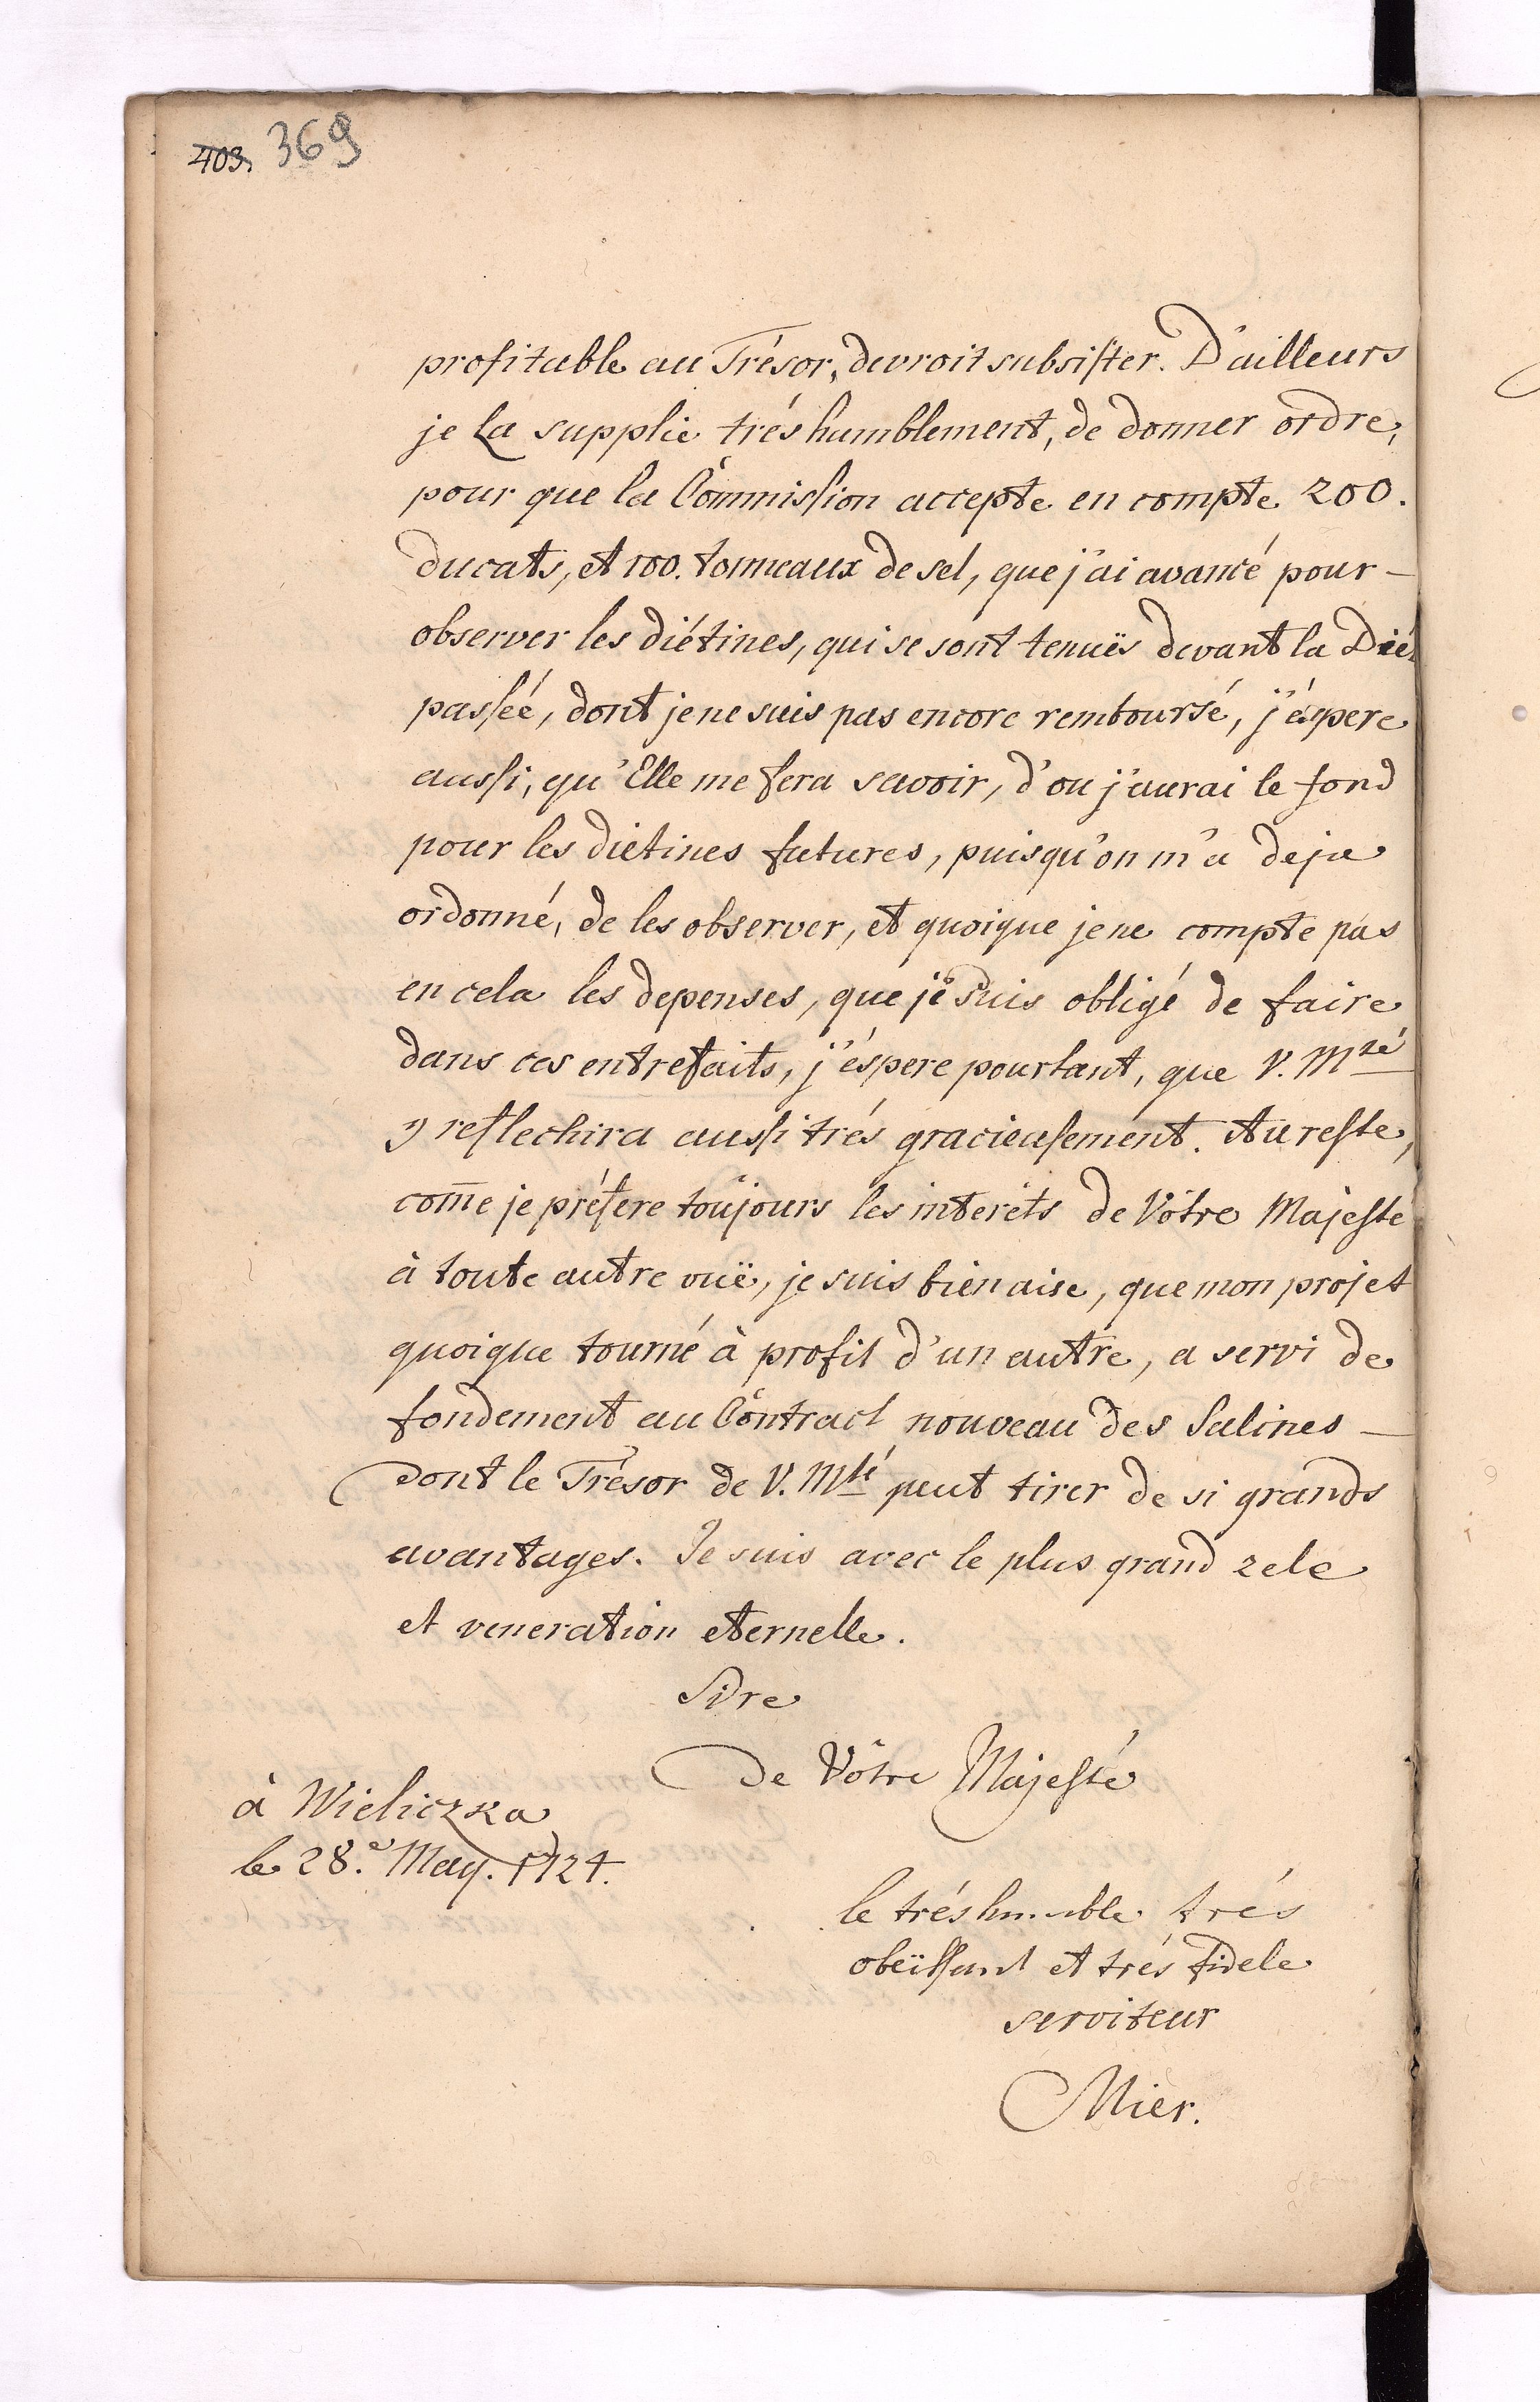 403. 369
profitable au Trésor, devroit subsister. D'ailleurs
je La supplie trés humblement, de donner ordre,
pour que la Commission accepte en compte 200.
ducats, et 100. tonneaux de sel, que j'ai avancé pour
observer les diétines, qui se sont tenuës devant la Diét
passéé, dont je ne suis pas encore remboursé, j'éspere
aussi, qu'Elle me fera savoir, d'ou j'aurai le fond
pour les diétines futures, puisqu'on m'a deja
ordonné, de les observer, et quoique je ne compte pas
en cela les depenses, que je suis obligé de faire
dans ces entrefaits, j'éspere pourtant, que V. Mté
y reflechira aussi trés gracieusement. Au reste,
com̄e je préfere toûjours les interêts de Vôtre Majesté
à toute autre vuë, je suis bien aise, que mon projet
quoique tourné à profit d'un autre, a servi de
fondement au Contract nouveau des Salines
dont le Trésor de V. Mté peut tirer de si grands
avantages. Je suis avec le plus grand zele
et veneration eternelle.
Sire
De Vôtre Majesté
à Wieliczka
le 28.e May. 1724.
le trés humble trés
obeïssant et trés fidele
serviteur
Mier.